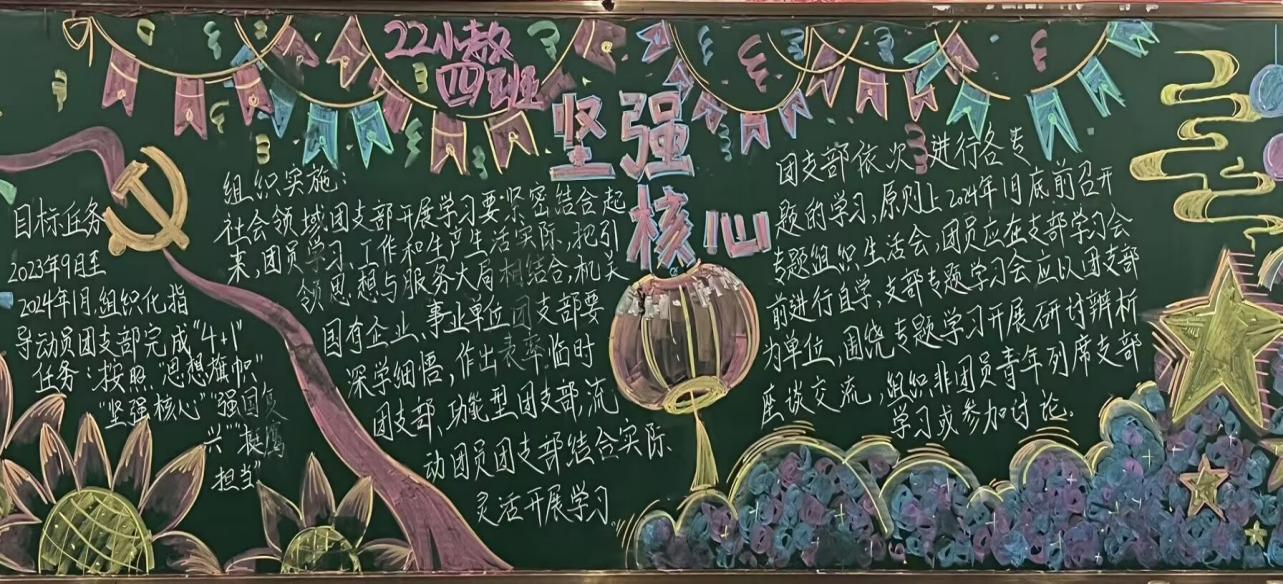 22小教
四班
坚强
核心
目标任务
2023年9月至
2024年1月,组织化指
导动员团支部完成"4+1"
任务:按照"思想旗帜"
"坚强核心""强国复
兴""挺膺
担当"
组织实施:
社会领域团支部开展学习要紧密结合起
来,团员学习、工作和生产生活实际,把引
领思想与服务大局相结合,机关
国有企业、事业单位团支部要
深学细悟,作出表率.临时
团支部、功能型团支部,流
动团员团支部结合实际
灵活开展学习。
团支部依次进行各专
题的学习,原则上2024年1月底前召开
专题组织生活会,团员应在支部学习会
前进行自学,支部专题学习会应以团支部
为单位,围绕专题学习开展研讨辨析
座谈交流,组织非团员青年列席支部
学习或参加讨论。